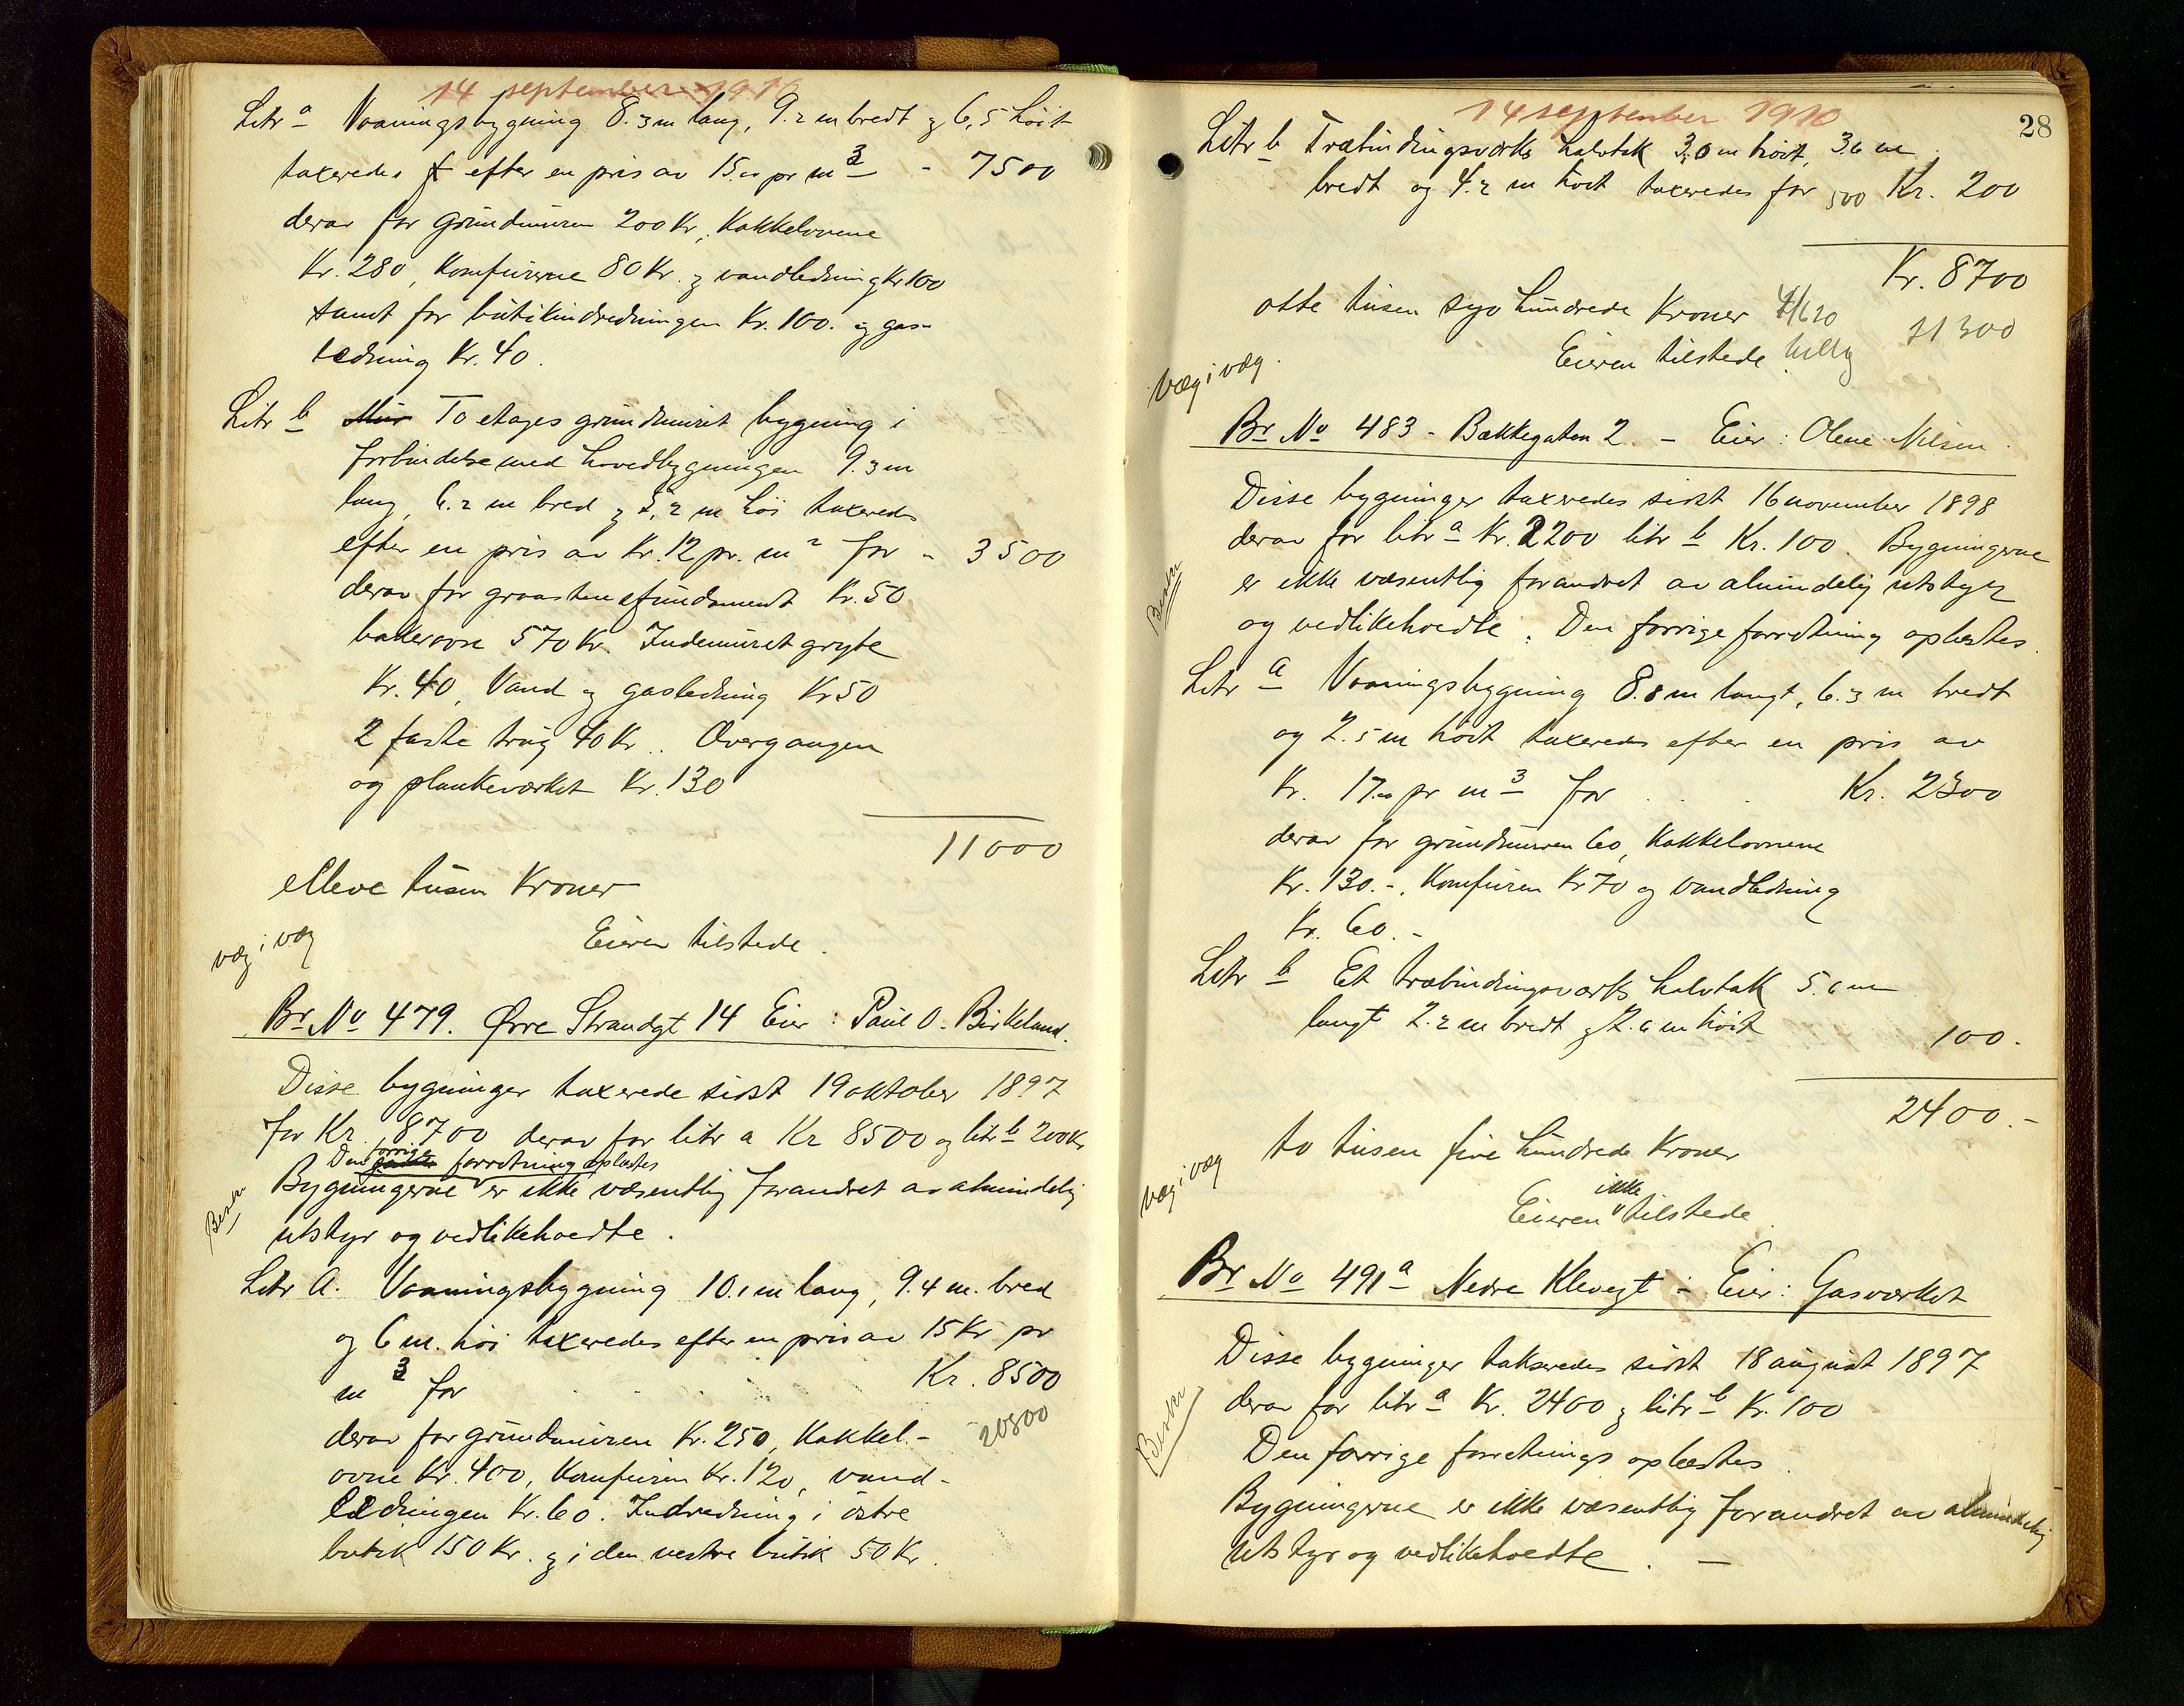 14 september 1910
Litr a Vaaningsbygning 8.3 m lang, 9.2 m bredt og 6,5 höit
taxeredes efter en pris av 15.00 pr m3 - 7500
derav for grundmuren 200 Kr, Kakkelovnene
Kr. 280, Komfurerne 80 Kr. og vandledning Kr 100
samt for butikindredningen Kr. 100. og gas-
ledning Kr. 40.
Litr b Mur To etages grundmuret bygning i
forbindelse med hovedbygningen 9.3 m
lang, 6.2 m bred og 5,2 m höi taxeredes
efter en pris av Kr. 12 pr. m2 for - 3500
derav for graastensfundament Kr. 50
bakerovn 570 Kr. Indemuret gryte
Kr. 40, Vand og gasledning Kr 50
2 faste trug 40 Kr. Overgangen
og plankeverket Kr. 130
11000
elleve tusen Kroner
væg i væg
Eieren tilstede.
Br. No 479. Øvre Strandgt 14 Eier: Paul O. Birkeland.
Disse bygninger taxerede sidst 19 oktober 1897
for Kr. 8700 derav for litr a Kr 8500 og litr b 200 Kr
Den forrige forretning oplæstes
Bygningerne er ikke væsentlig forandret av almindelig
Besku
utstyr og vedlikeholdte.
Litr A. Vaaningsbygning 10.1 m lang, 9.4 m. bred
og 6 m. höi taxeredes efter en pris av 15 Kr pr
m3 for Kr. 8500
20800
derav for grundmuren Kr. 250, Kakkel-
ovne Kr. 400, Komfuren Kr. 120, vand-
ledningen Kr. 60. Indredning i östre
butik 150 Kr. og i den vestre butik 50 Kr.
14 september 1910
28
Litr b Træbindingsverks halvtak 3,0 m höit, 3.6 m
bredt og 4.2 m höit taxeredes for 500 Kr. 200
Kr. 8700
otte tusen syv hundrede Kroner 4/6 20 11300
Eieren tilstede.
væg i væg.
Br No 483 - Bakkegaten 2. - Eier: Olene Nilsen.
Disse bygninger taxeredes sidst 16 november 1898
derav for litr a Kr. 2200 litr b Kr. 100. Bygningerne
er ikke væsentlig forandret av almindelig utstyr
Besku
og vedlikeholdte. Den forrige forretning oplæstes.
Litr a Vaaningsbygning 8.8 m langt, 6.3 m bredt
og 2.5 m höit taxeredes efter en pris av
Kr. 17.00 pr m3 for . . Kr. 2300
derav for grundmuren 60, Kakkelovnene
Kr. 130.-, Komfuren Kr 70 og vandledning
Kr. 60.-
Litr b Et træbindingsverks halvtak 5.6 m
langt 2.2 m bredt og 2.6 m höit 100.
2400.-
to tusen fire hundrede Kroner
væg i væg
Eieren ikke tilstede.
Br No 491a Nedre Klevegt - Eier: Gasverket
Disse bygninger takseredes sidst 18 august 1897
derav for litr a Kr. 2400 og litr b Kr. 100
Besku
Den forrige forretnings oplæstes.
Bygningerne er ikke væsentlig forandret av almindelig
utstyr og vedlikeholdte. -